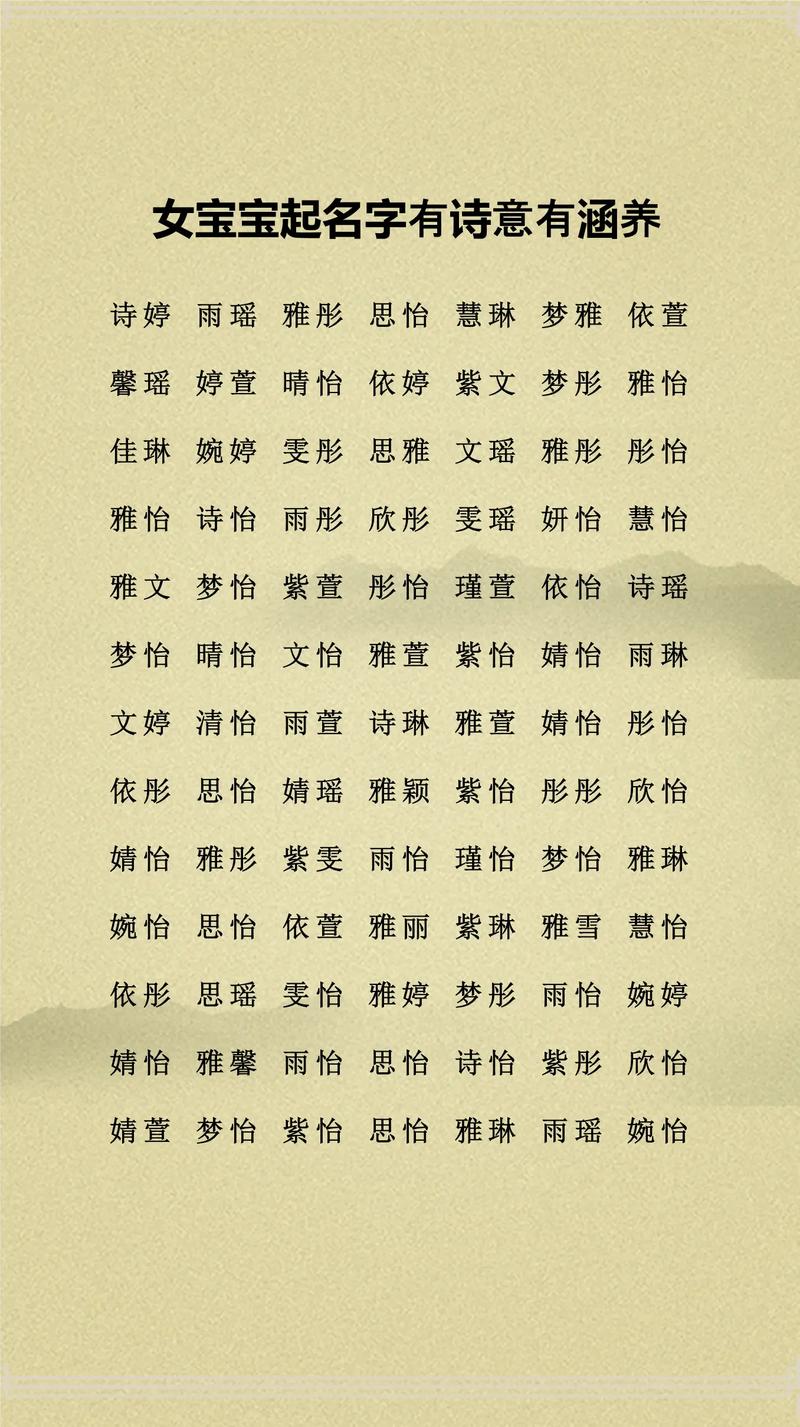 女宝宝起名字有诗意有涵养
诗婷 雨瑶 雅彤 思怡 慧琳 梦雅 依萱
馨瑶 婷萱 晴怡 依婷 紫文 梦彤 雅怡
佳琳 婉婷 雯彤 思雅 文瑶 雅彤 彤怡
雅怡 诗怡 雨彤 欣彤 雯瑶 妍怡 慧怡
雅文 梦怡 紫萱 彤怡 瑾萱 依怡 诗瑶
梦怡 晴怡 文怡 雅萱 紫怡 婧怡 雨琳
文婷 清怡 雨萱 诗琳 雅萱 婧怡 彤怡
依彤 思怡 婧瑶 雅颖 紫怡 彤彤 欣怡
婧怡 雅彤 紫雯 雨怡 瑾怡 梦怡 雅琳
婉怡 思怡 依萱 雅丽 紫琳 雅雪 慧怡
依彤 思瑶 雯怡 雅婷 梦彤 雨怡 婉婷
婧怡 雅馨 雨怡 思怡 诗怡 紫彤 欣怡
婧萱 梦怡 紫怡 思怡 雅琳 雨瑶 婉怡